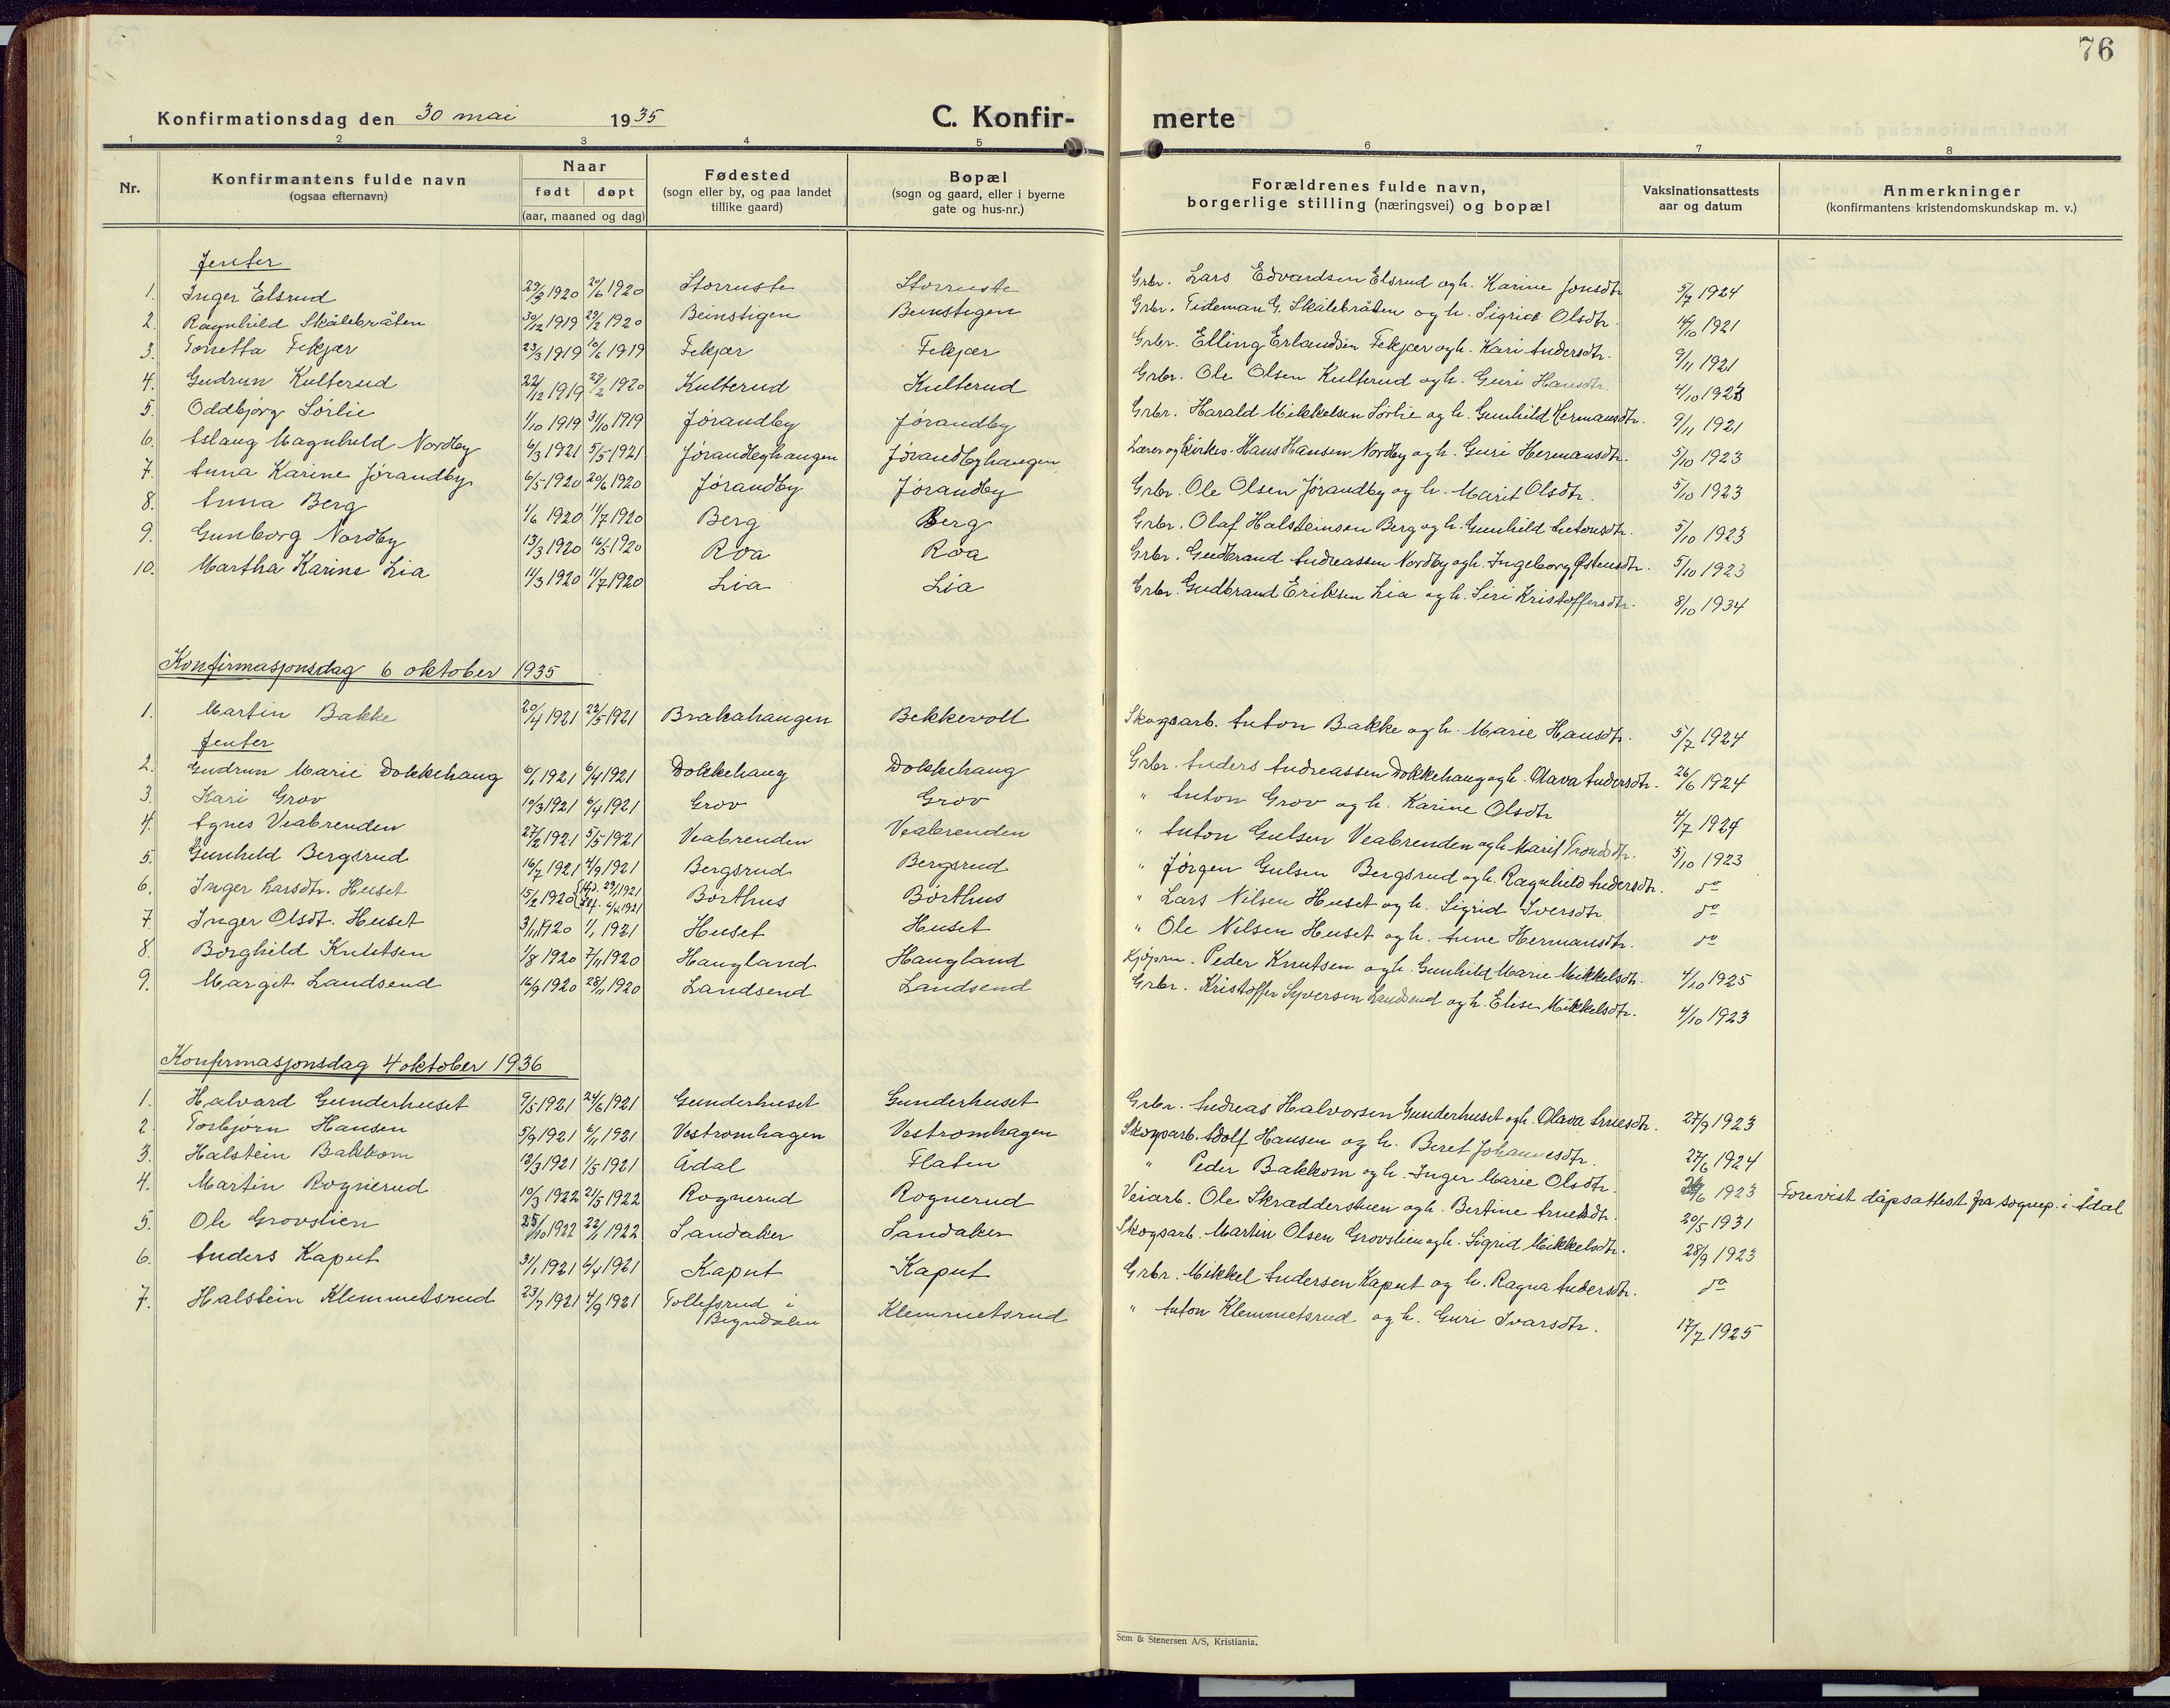 76
Konfirmationsdag den 30 mai 1935 C. Konfir- merte
1 2 3 4 5 6 7 8
Nr. Konfirmantens fulde navn (ogsaa efternavn) Naar født døpt (aar, maaned og dag) Fødested (sogn eller by, og paa landet tillike gaard) Bopæl (sogn og gaard, eller i byerne gate og hus-nr.) Forældrenes fulde navn, borgerlige stilling (næringsvei) og bopæl Vaksinationsattests aar og datum Anmerkninger (konfirmantens kristendomskundskap m. v.)
Jenter
1. Inger Elsrud 29/3 1920 20/6 1920 Storruste Storruste Grbr. Lars Edvardsen Elsrud og h. Karine Jonsdtr 5/7 1924
2. Ragnhild Skålebråten 30/12 1919 29/2 1920 Beinstigen Beinstigen Grbr. Tideman G. Skålebråten og h. Sigrid Olsdtr. 14/10 1921
3. Tonetta Fekjær 23/3 1919 10/6 1919 Fekjær Fekjær Grbr. Elling Erlandsen Fekjær og h. Kari Andersdtr. 9/11 1921
4. Gudrun Kulterud 22/12 1919 29/2 1920 Kulterud Kulterud Grbr. Ole Olsen Kulterud og h. Guri Hansdtr. 4/10 1923
5. Oddbjørg Sørlie 1/10 1919 31/10 1919 Jørandby Jørandby Grbr. Harald Mikkelsen Sørlie og h. Gunhild Hermansdtr. 9/11 1921
6. Aslaug Magnhild Nordby 6/3 1921 5/5 1921 Jørandbyhaugen Jørandbyhaugen Lærer og kirkes. Hans Hansen Nordby og h. Guri Hermansdtr. 5/10 1923
7. Anna Karine Jørandby 6/5 1920 20/6 1920 Jørandby Jørandby Grbr. Ole Olsen Jørandby og h. Marit Olsdtr. 5/10 1923
8. Anna Berg 1/6 1920 11/7 1920 Berg Berg Grbr. Olaf Halsteinsen Berg og h. Gunhild Antonsdtr. 5/10 1923
9. Gunborg Nordby 13/3 1920 16/5 1920 Roa Roa Grbr. Gudbrand Andreassen Nordby og h. Ingeborg Østensdtr. 5/10 1923
10. Martha Karine Lia 11/3 1920 11/7 1920 Lia Lia Grbr. Gudbrand Eriksen Lia og h. Siri Kristoffersdtr. 8/10 1934
Konfirmasjonsdag 6 oktober 1935
1. Martin Bakke 20/4 1921 22/5 1921 Brakahaugen Bekkevoll Skogsarb. Anton Bakke og h. Marie Hansdtr. 5/7 1924
Jenter
2. Gudrun Marie Dokkehaug 6/1 1921 6/4 1921 Dokkehaug Dokkehaug Grbr. Anders Andreassen Dokkehaug og h. Olava Andersdtr. 26/6 1924
3. Kari Grov 10/3 1921 6/4 1921 Grov Grov " Anton Grov og h. Karine Olsdtr 4/7 1924
4. Agnes Veabrenden 27/2 1921 5/5 1921 Veabrenden Veabrenden " Anton Gulsen Veabrenden og h. Marit Trondsdtr. 5/10 1923
5. Gunhild Bergsrud 16/7 1921 4/9 1921 Bergsrud Bergsrud " Jørgen Gulsen Bergsrud og h. Ragnhild Andersdtr. do
6. Inger Larsdtr. Huset 15/12 1920 29/1 1921 6/4 1921 Børthus Børthus " Lars Nilsen Huset og h. Sigrid Iversdtr do
7. Inger Olsdt. Huset 3/11 1920 1/1 1921 Huset Huset " Ole Nilsen Huset og h. Anne Hermansdtr. do
8. Borghild Knutsen 1/8 1920 7/11 1920 Haugland Haugland Kjøpm. Peder Knutsen og h. Gunhild Marie Mikkelsdtr. 4/10 1925
9. Margit Landsend 16/9 1920 28/11 1920 Landsend Landsend Grbr. Kristoffer Syversen Landsend og h. Elise Mikkelsdtr. 4/10 1923
Konfirmasjonsdag 4 oktober 1936
1. Halvard Gunderhuset 9/5 1921 24/6 1921 Gunderhuset Gunderhuset Grbr. Andreas Halvorsen Gunderhuset og h. Olava Arnesdtr. 27/9 1923
2. Torbjørn Hansen 5/9 1921 6/11 1921 Vestromhagen Vestromhagen Skogsarb. Adolf Hansen og h. Beret Johannesdtr. 27/6 1924
3. Halstein Bakkom 12/3 1921 1/5 1921 Ådal Flaten " Peder Bakkom og h. Inger Marie Olsdtr. 26/6 1923 Forevist dåpsattest fra sognep. i Ådal
4. Martin Rognerud 10/3 1922 21/5 1922 Rognerud Rognerud Veiarb. Ole Skradderstuen og h. Bertine Arnesdtr. 20/5 1931
5. Ole Grovslien 25/10 1922 22/1 1922 Sandaker Sandaker Skogsarb. Martin Olsen Grovslien og h. Sigrid Mikkelsdtr. 28/9 1923
6. Anders Kaput 31/1 1921 6/4 1921 Kaput Kaput Grbr. Mikkel Andersen Kaput og h. Ragna Andersdtr. do
7. Halstein Klemmetsrud 23/7 1921 4/9 1921 Tollefsrud i Begndalen Klemmetsrud " Anton Klemmetsrud og h. Guri Ivarsdtr. 17/7 1925
Sem & Stenersen A/S, Kristiania.